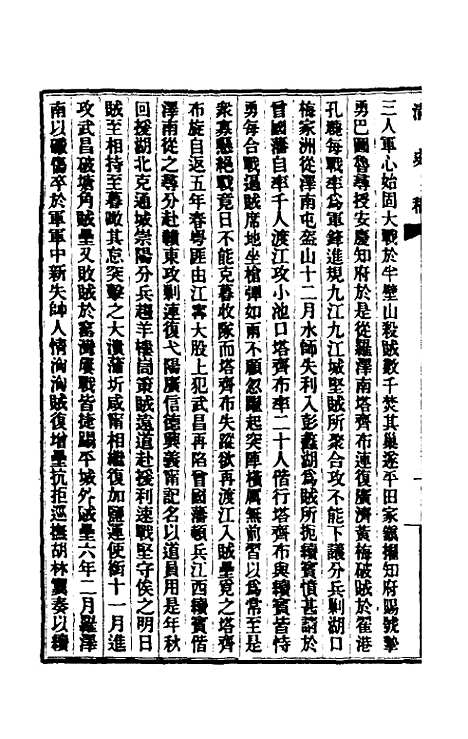 清史稿
三人軍心始固大戰於半壁山殺賊數千焚其巢遂平田家鎮擢知府賜號摯
勇巴圖魯尋授安慶知府於是從羅澤南塔齊布連復廣濟黃梅破賊於翟港
孔壠每戰率爲軍鋒進規九江九江城堅賊所聚合攻不能下議分兵剿湖口
梅家洲從澤南屯盔山十二月水師失利入彭蠡湖爲賊所扼續賓憤甚請於
曾國藩自率千人渡江攻小池口塔齊布率二十人偕行塔齊布與續賓皆恃
勇每合戰逼賊席地坐槍彈如雨不顧忽躍起突陣橫厲無前習以爲常至是
衆寡懸絕戰竟日不能克暮收隊而塔齊布失蹤欲再渡江入賊壘覓之塔齊
布旋自返五年春粵匪由江寧大股上犯武昌再陷曾國藩頓兵江西續賓偕
澤南從之尋分赴贛東攻剿連復弋陽廣信德興義甯記名以道員用是年秋
回援湖北克通城崇陽分兵趨羊樓峝策賊遠道赴援利速戰堅守俟之明日
賊至相持至暮瞰其怠突擊之大潰蒲圻咸甯相繼復加鹽運使銜十一月進
攻武昌破塘角賊壘又敗賊於窰灣屢戰皆捷蹋平城外賊壘六年二月羅澤
南以礮傷卒於軍軍中新失帥人情洶洶賊復增壘抗拒巡撫胡林翼奏以續